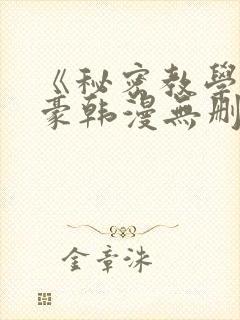 《秘密教學
豪韩漫無删
金章洙